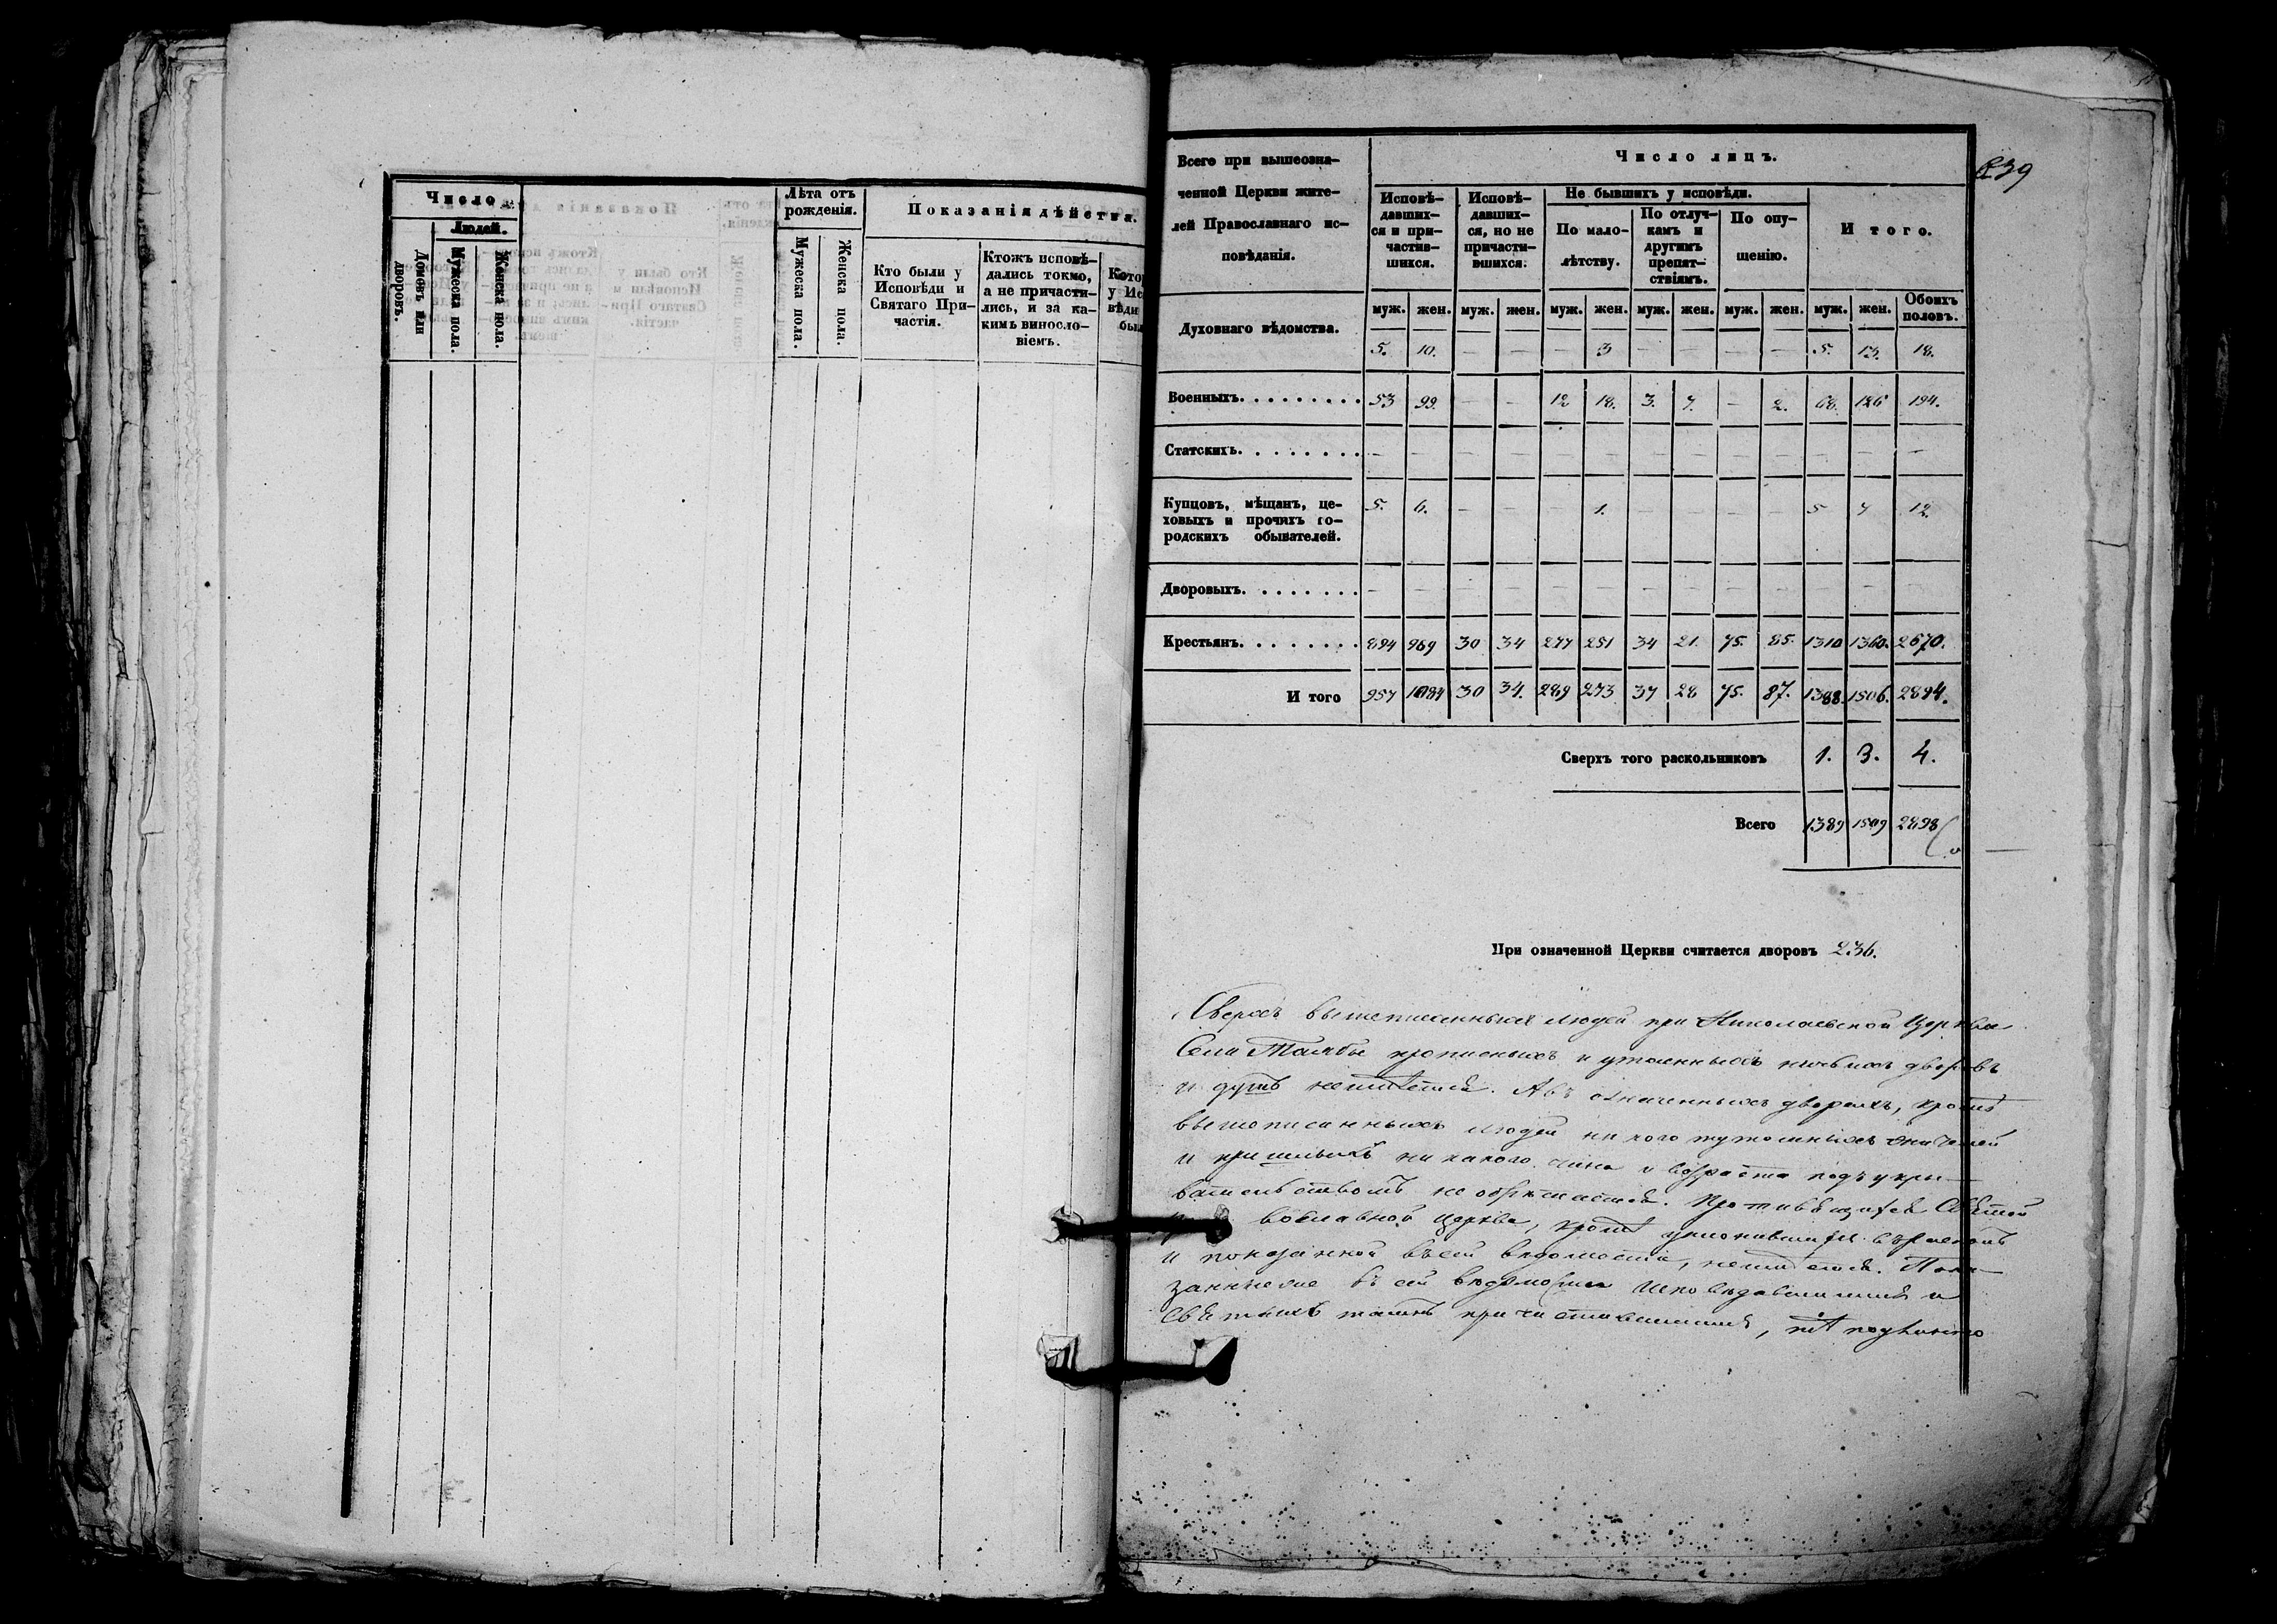 Число
Людей.
Домовъ или дворовъ.
Мужеска пола.
Женска пола.
Лѣта отъ рожденія.
Мужеска пола.
Женска пола.
Показанія дѣйства.
Кто были у Исповѣди и Святаго При-
частія.
Ктожъ исповѣ-
дались токмо,
а не причасти-
лись, и за ка-
кимъ винословіемъ.
239
Всего при вышеозна-
ченной Церкви жите-
лей Православнаго ис-
повѣданія.
Число лицъ.
Исповѣ-
давших-
ся и при-
частив-
шихся.
Исповѣ-
давших-
ся, но не
причасти-
вшихся.
Не бывшихъ у исповѣди.
По мало-
лѣтству.
По отлуч-
камъ и
другимъ
препят-
ствіямъ.
По опу-
щенію.
Итого.
муж. жен. муж. жен. муж. жен. муж. жен. муж. жен. муж. жен. Обоихъ половъ.
Духовнаго вѣдомства.
5. 10. — — — 3 — — — — 5. 13. 18.
Военныхъ. 53 99. — — 12 18. 3. 7. — 2. 68. 126 194.
Статскихъ. — — — — — — — — — — — — —
Купцовъ, мѣщанъ, це-
ховыхъ и прочихъ го-
родскихъ обывателей.
5. 6. — — — 1. — — — — 5 7 12.
Дворовыхъ. — — — — — — — — — — — — —
Крестьянъ. 894 969 30 34 277 251 34 21. 75. 85. 1310 1360. 2670.
И того 957 1084 30 34. 289 273 37 28 75. 87. 1388. 1506. 2894.
Сверхъ того раскольниковъ 1. 3. 4.
Всего 1389 1509 2898
При означенной Церкви считается дворовъ 236.
Сверхъ вышеписанныхъ людей при Николаевской Церкви
Села прописныхъ и утаенныхъ дворовъ
и душъ неимѣется. А въ означенныхъ дворахъ, кромѣ
вышеписанныхъ людей
и пришлыхъ ни какого чина и возраста подъ укры-
вательствомъ не обрѣтается. Святой
вославной Церкви, кромѣ
и показанной въ сей вѣдомости, неимѣется. Пока-
занные въ сей вѣдомости исповѣдавшимися и
Святыхъ таинъ причастившимися,